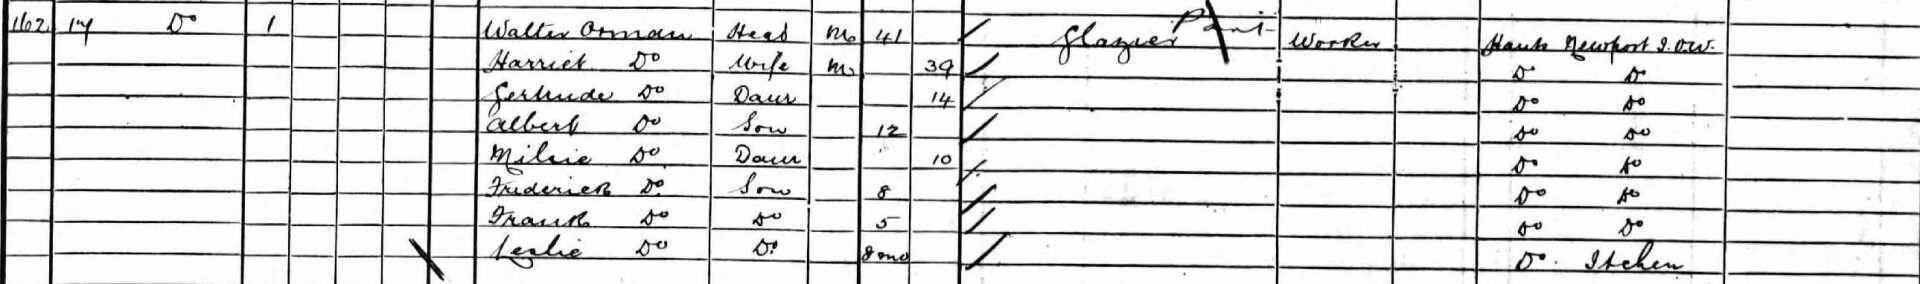 162 17 Do 1 Walter Orman Head M 41 Glazier Worker Hants Newport I.O.W.
Harriet Do Wife M 39 Do Do
Gertrude Do Daur 14 Do Do
Albert Do Son 12 Do Do
Daur 10 Do Do
Do
Frederick Do Son 8 Do Do
Frank Do Do 5 Do Do
Leslie Do Do 8 mo Do Itchen